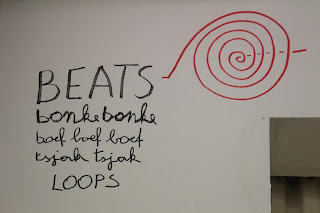 BEATS
bonke bonke
boef boef boef
tsjak tsjak
LOOPS